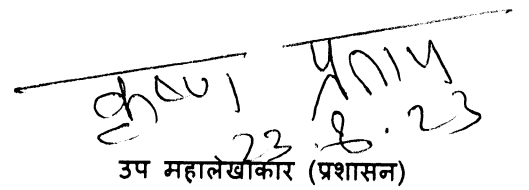 कृष्ण प्रताप
23.8.23
उप महालेखाकार (प्रशासन)